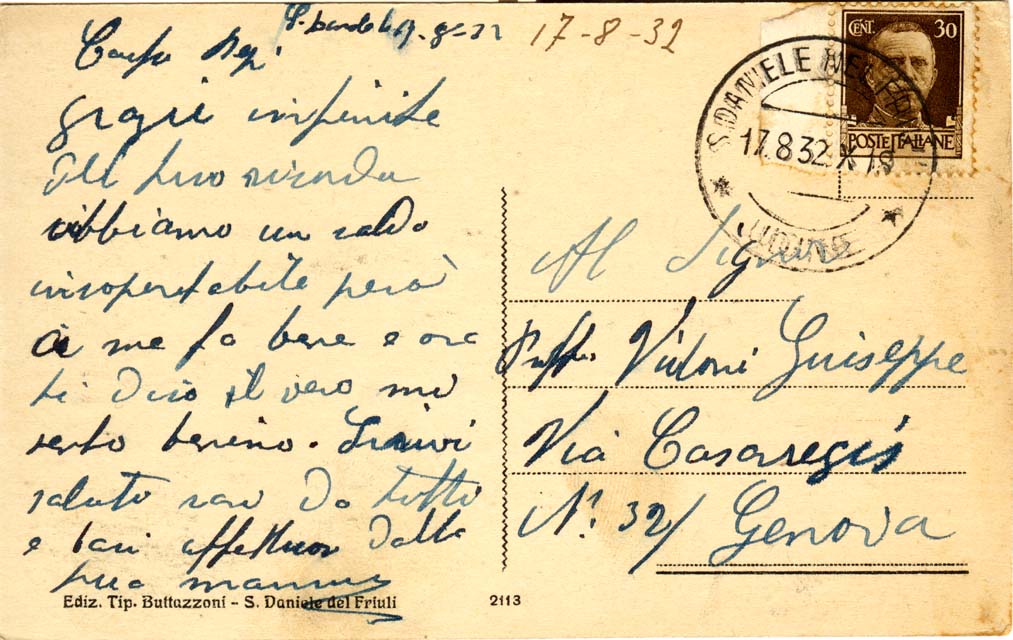 17-8-32
grazie infinite
del tuo ricordo
abbiamo un caldo
insopportabile però
a me fa bene e ora
ti dico il vero mi
sento benino. Scrivi
saluti cari da tutti
e baci affettuosi dalla
tua mamma
Ediz. Tip. Buttazzoni - S. Daniele del Friuli
2113
CENT. 30
POSTE ITALIANE
S. DANIELE DEL
17.8.32 X
UDINE
Al Signor
Vidoni Giuseppe
Via Casaregis
N. 32/ Genova